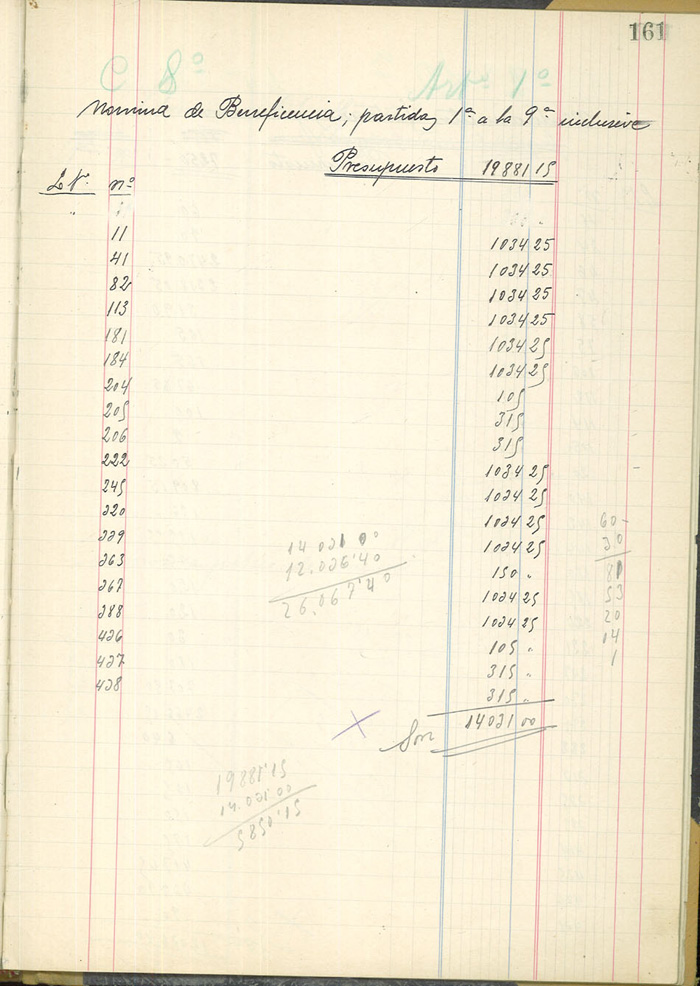 161
C 8º Artº 1º
Nomina de Beneficencia; partidas 1ª a la 9ª inclusive
Presupuesto 19881 15
Lº. nº
11 1034 25
41 1034 25
82 1034 25
113 1034 25
181 1034 25
184 1034 25
204 105
205 315
206 315
222 1034 25
245 1034 25
320 1034 25
339 1034 25
363 150 "
367 1034 25
388 1034 25
436 105 "
437 315 "
438 315 "
Son 14031 00
14 031 00
12.036.40
26.067.40
60 -
30
81
53
20
14
1
19881.15
14.031.00
5850.15